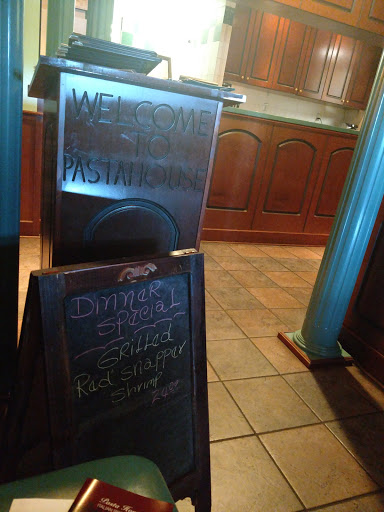 WELCOME
TO
PASTAHOUSE
DINNER
SPECIAL
GRILLED
Red snapper
Shrimp
Pasta